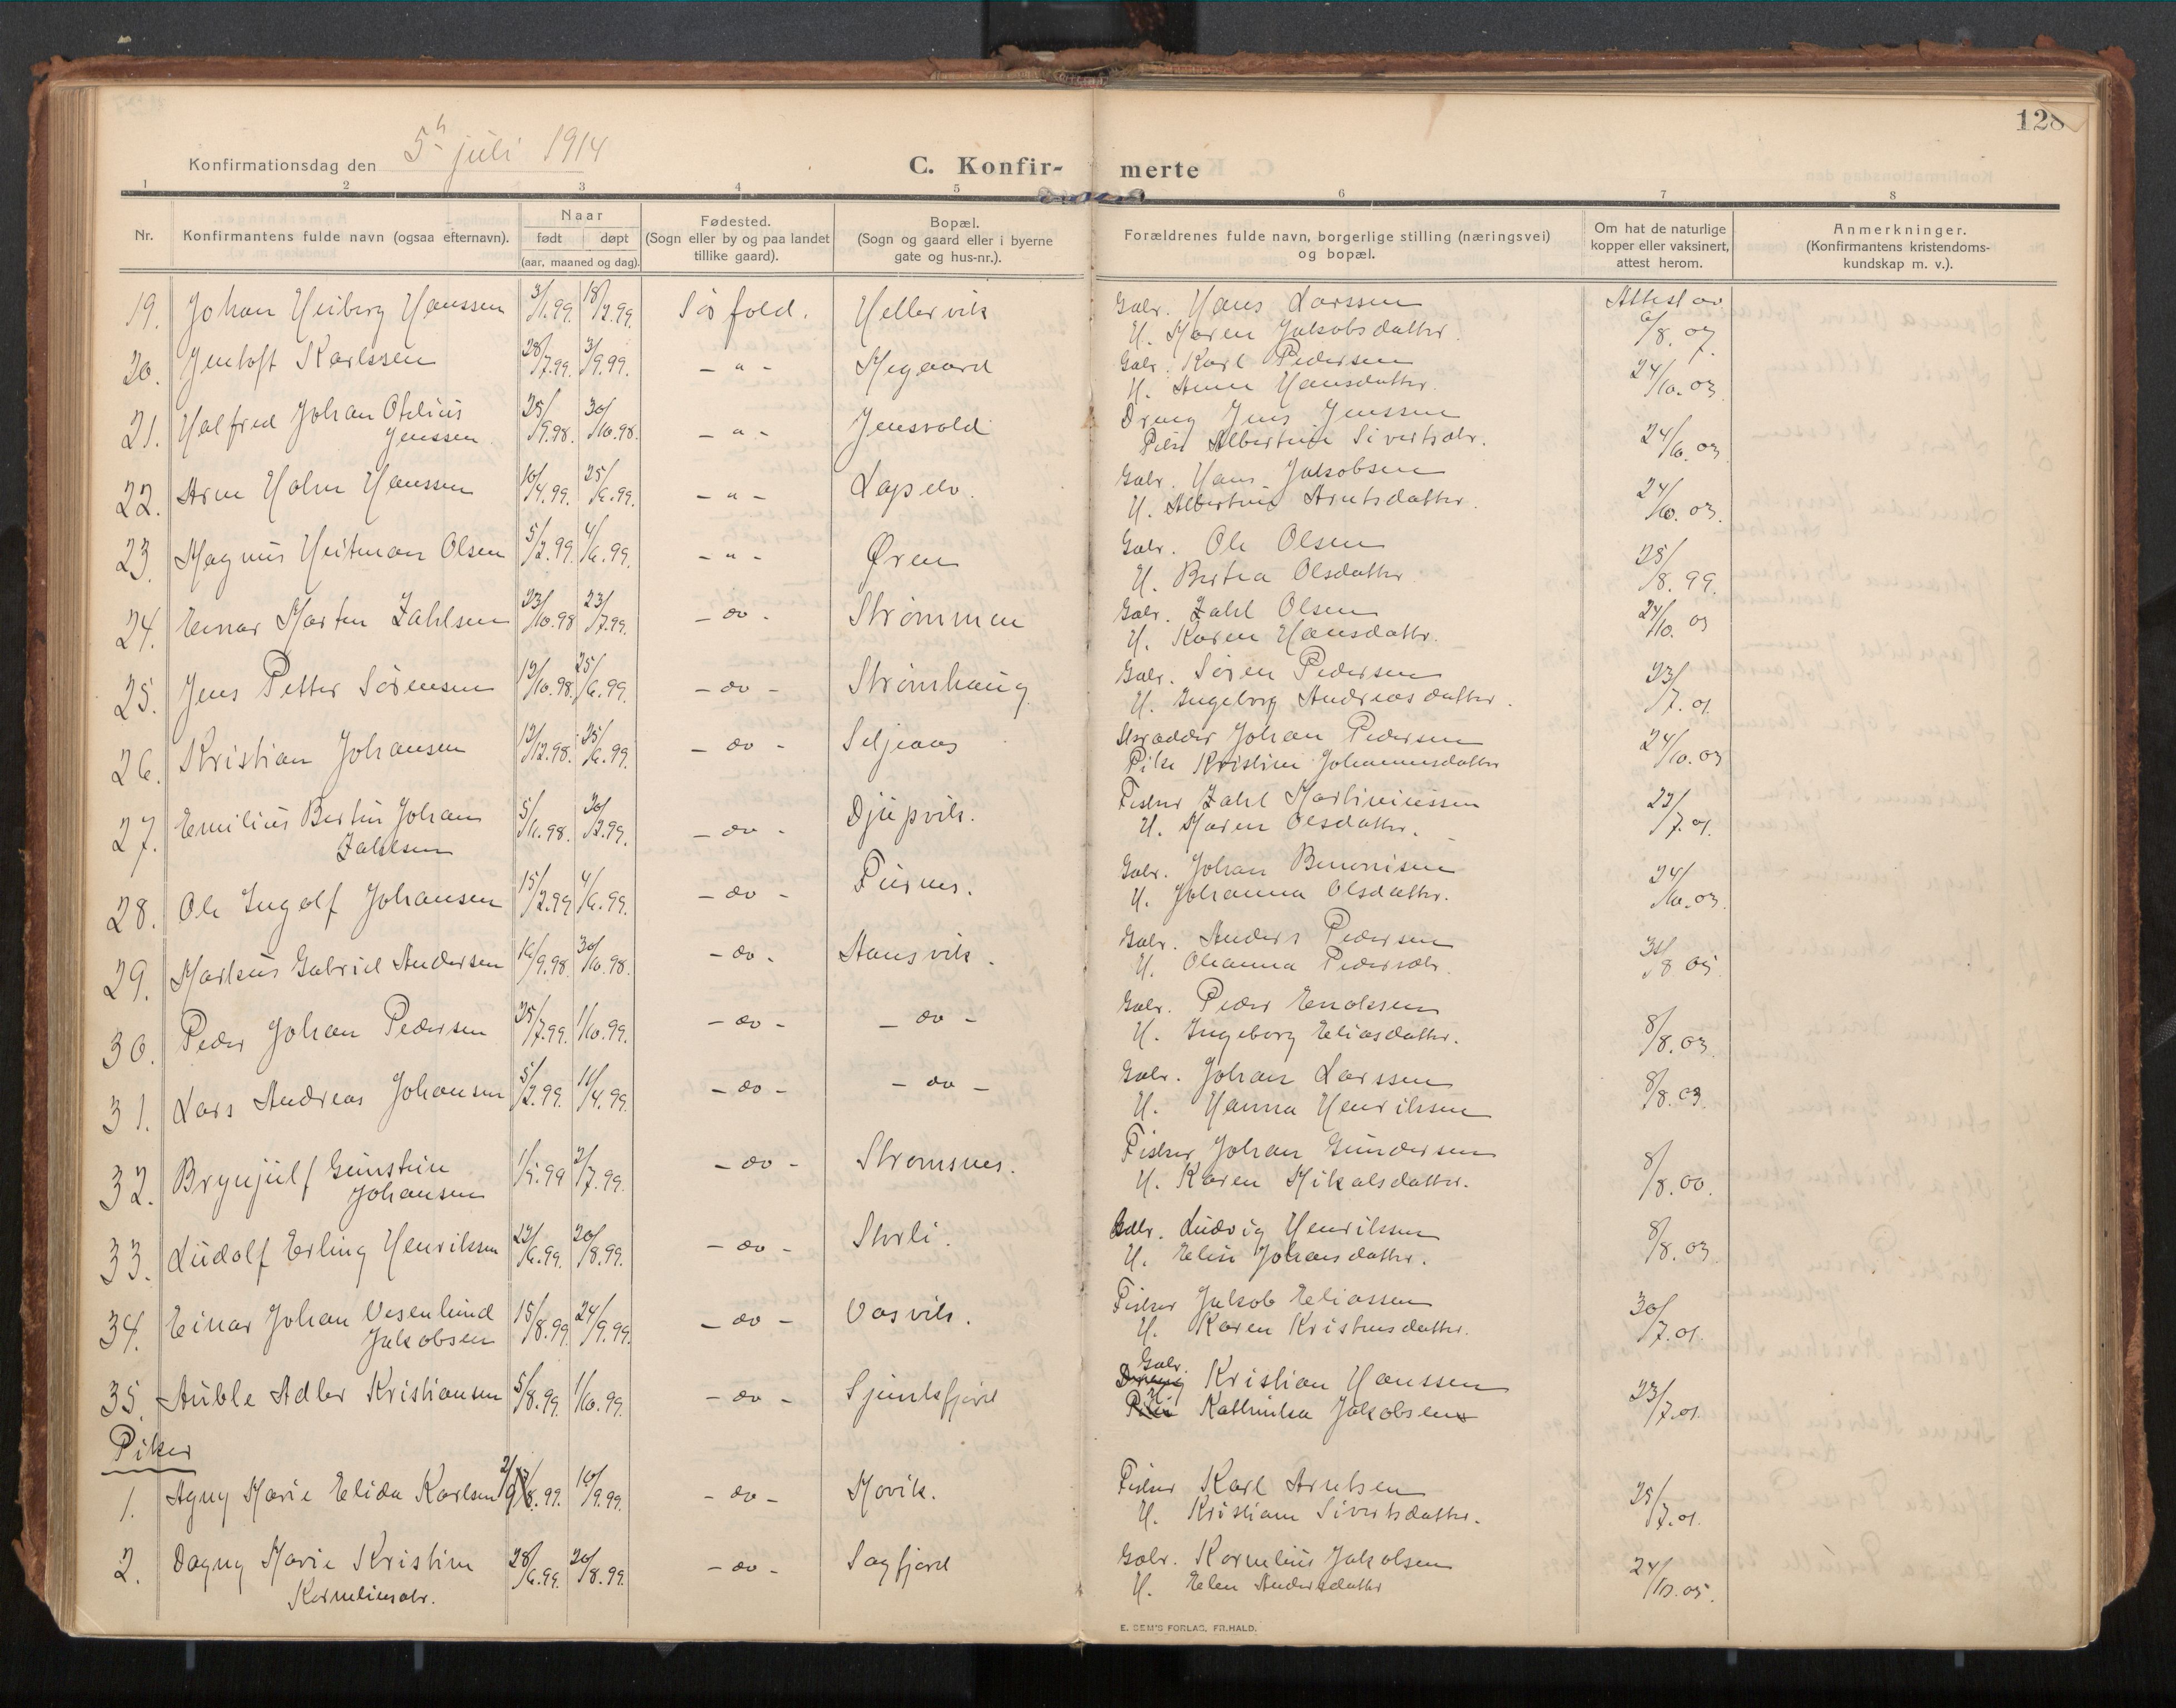 128
Konfirmationsdag den 5h juli 1914
C. Konfir- merte
1 2 3 4 5 6 7 8
Nr.
Konfirmantens fulde navn (ogsaa efternavn).
Naar
født døpt
(aar, maaned og dag).
Fødested.
(Sogn eller by og paa landet
tillike gaard).
Bopæl.
(Sogn og gaard eller i byerne
gate og hus-nr.).
Forældrenes fulde navn, borgerlige stilling (næringsvei)
og bopæl.
Om hat de naturlige
kopper eller vaksinert,
attest herom.
Anmerkninger.
(Konfirmantens kristendoms-
kundskap m. v.).
19. Johan Heiberg Hanssen 3/1.99. 18/2.99. Sørfold. Hellervik Gbr. Hans Larssen Attest av
H. Maren Jakobsdatter. 6/8.07.
20. Jentoft Karlssen 28/7.99. 3/9.99. - " - Megaard Gbr. Karl Pedersen
H. Anna Hansdatter. 24/10.03
21. Halfred Johan Otelius 25/9.98. 30/10.98. - " - Jensvold Dreng Jens Jenssen
Jenssen. Pike Albertine Sivertsdtr. 24/10.03
22. Arne Holm Hanssen 10/4.99. 25/6.99. - " - Lapelv. Gbr. Hans Jakobsen
H. Albertine Arntsdatter. 24/10.03.
23. Magnus Heitman Olsen 5/2.99. 4/6.99. - " - Øren Gbr. Ole Olsen
H. Bertea Olsdatter 25/8.99.
24. Einar Martin Zahlsen 23/10.98 23/7.99. - do - Strømmen Gbr. Zahl Olsen
H. Karen Hansdatter. 24/10.03
25. Jens Petter Sørensen 12/10.98. 25/6.99. - do - Strømhaug Gbr. Søren Pedersen
H. Ingeborg Andreasdatter. 23/7.01.
26. Kristian Johansen 12/12.98. 25/6.99. - do - Seljeaas Skrædder Johan Pedersen
Pike Kristine Johannesdatter 24/10.03
27. Emilius Bertin Johan 5/11.98. 20/2.99. - do - Djupvik. Fisker Zahl Martinussen
Zahlsen H. Maren Olsdatter. 23/7.01.
28. Ole Ingolf Johansen 15/2.99 4/6.99. - do - Furnes. Gbr. Johan Benonisen
H. Johanna Olsdatter. 24/10.03.
29. Markus Gabriel Andersen 16/9.98. 30/10.98. - do - Hansvik. Gbr. Anders Pedersen
H. Oleanna Pedersdtr. 31/8 05
30. Peder Johan Pedersen 25/7.99. 1/10.99. - do - - do - Gbr. Peder Enoksen
H. Ingeborg Eliasdatter. 8/8.03.
31. Lars Andreas Johansen 5/2.99. 11/4.99. - do - - do - Gbr. Johan Larssen
H. Hanna Henriksen 8/8.03.
32. Brynjulf Gunstein 1/5.99 2/7.99. - do - Strømsnes. Fisker Johan Gundersen
Johansen H. Karen Mikalsdatter. 8/8.00.
33. Ludolf Erling Henriksen 12/6.99. 20/8.99. - do - Storli. Gbr. Ludvig Henriksen
H. Elise Johansdatter. 8/8.03
34. Einar Johan Vesenlund 15/8.99 24/9.99. - do - Vasvik. Fisker Jakob Eliassen
Jakobsen H. Karen Kristensdatter. 30/7.01.
35. Auble Adler Kristiansen 5/8.99. 1/10.99. - do - Sjunkfjord Gbr. Dreng Kristian Hanssen
H. Pike Kathinka Jakobsen 23/7.01.
Piker
1. Agny Marie Elida Karlsen 2/8.99. 10/9.99. - do - Movik. Fisker Karl Arntsen
H. Kristiane Sivertsdatter. 25/7.01.
2. Dagny Marie Kristine 28/6.99. 20/8.99. - do - Sagfjord Gbr. Kornelius Jakobsen
Korneliusdtr. H. Elen Andersdatter 24/10.05.
E. SEM'S FORLAG, FR.HALD.